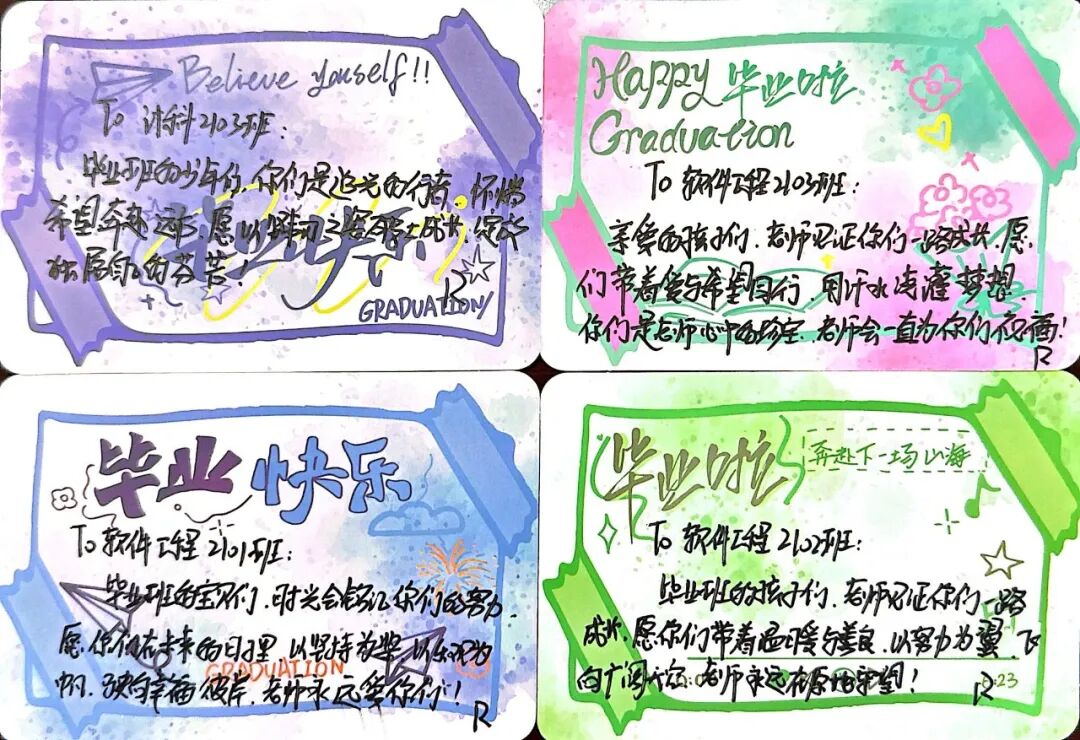 Believe youself!!
To 计科2103班:
毕业班的少年们,你们是追光的行者,怀揣
希望奔赴远方,愿以坚韧之姿踏上成长,绽放
独属自己的芬芳!
毕业快乐
GRADUATION
R
Happy 毕业啦
Graduation
To 软件工程2103班:
亲爱的孩子们,老师见证你们一路成长,愿
们带着爱与希望前行,用汗水浇灌梦想.
你们是老师心中的珍宝,老师会一直为你们祝福!
R
毕业快乐
To 软件工程2101班:
毕业班的宝贝们,时光会铭记你们的努力,
愿你们在未来的日子里,以坚持为桨,以乐观为
帆,驶向幸福彼岸,老师永远爱你们!
GRADUATION
R
毕业啦
奔赴下一场山海
To 软件工程2102班:
毕业班的孩子们,老师见证你们一路
成长,愿你们带着温暖与善良,以努力为翼,飞
向广阔天空,老师永远在原地守望!
R
23